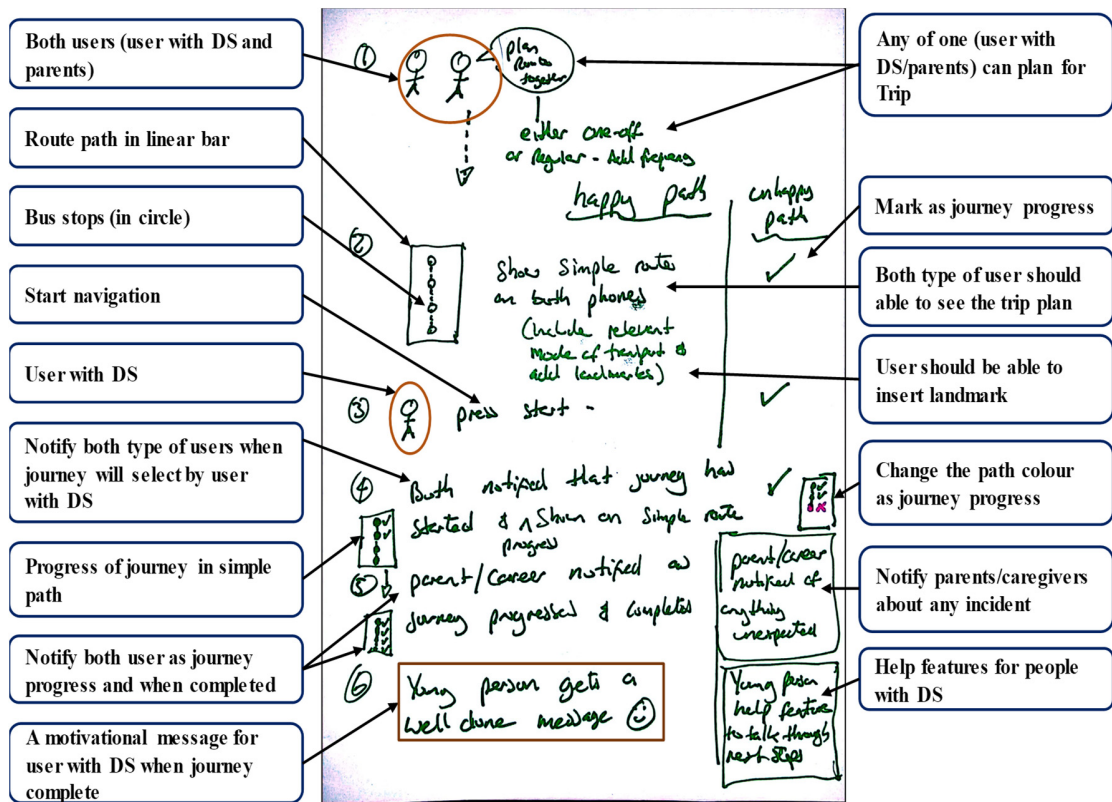 Both users (user with DS and
parents)
Route path in linear bar
Bus stops (in circle)
Start navigation
User with DS
Notify both type of users when
journey will select by user
with DS
Progress of journey in simple
path
Notify both user as journey
progress and when completed
A motivational message for
user with DS when journey
complete
1
plan
route
together
either one-off
or Regular - Add frequency
happy path
unhappy
path
2
Show Simple route
on both phones
(include relevant
mode of transport &
add landmarks)
3
press start -
4
Both notified that journey had
started & ^ Shown on simple route
progress
5
parent/career notified as
journey progressed & completed
6
Young person gets a
well done message
parent/career
notified of
anything
unexpected
Young person
help feature
to talk through
next steps
Any of one (user with
DS/parents) can plan for
Trip
Mark as journey progress
Both type of user should
able to see the trip plan
User should be able to
insert landmark
Change the path colour
as journey progress
Notify parents/caregivers
about any incident
Help features for people
with DS